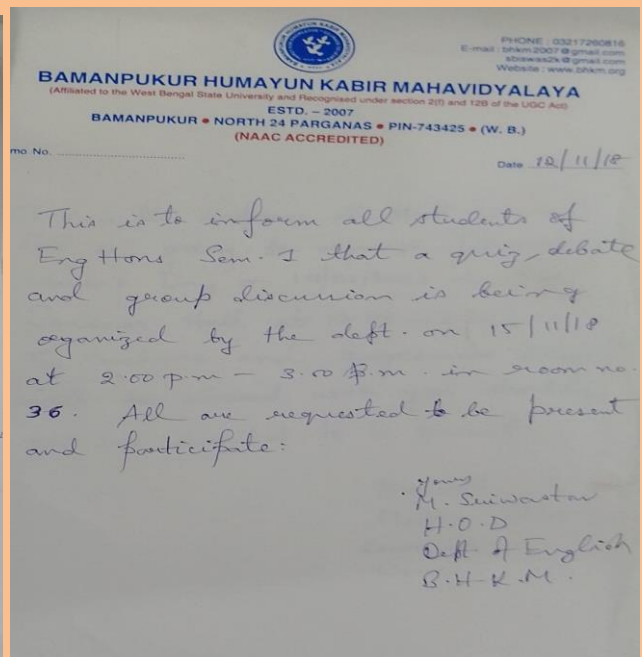 PHONE : 03217260816
E-mail : bhkm2007@gmail.com
sbiswas2k@gmail.com
Website : www.bhkm.org
BAMANPUKUR HUMAYUN KABIR MAHAVIDYALAYA
(Affiliated to the West Bengal State University and Recognised under section 2(f) and 12B of the UGC Act)
ESTD. – 2007
BAMANPUKUR • NORTH 24 PARGANAS • PIN-743425 • (W. B.)
(NAAC ACCREDITED)
mo No.
Date 12/11/18
This is to inform all students of
Eng Hons Sem. I that a quiz, debate
and group discussion is being
organized by the dept. on 15/11/18
at 2.00 p.m – 3.00 p.m. in room no.
36. All are requested to be present
and participate:
yours
M. Sriwastav
H.O.D
Dept of English
B.H.K.M.